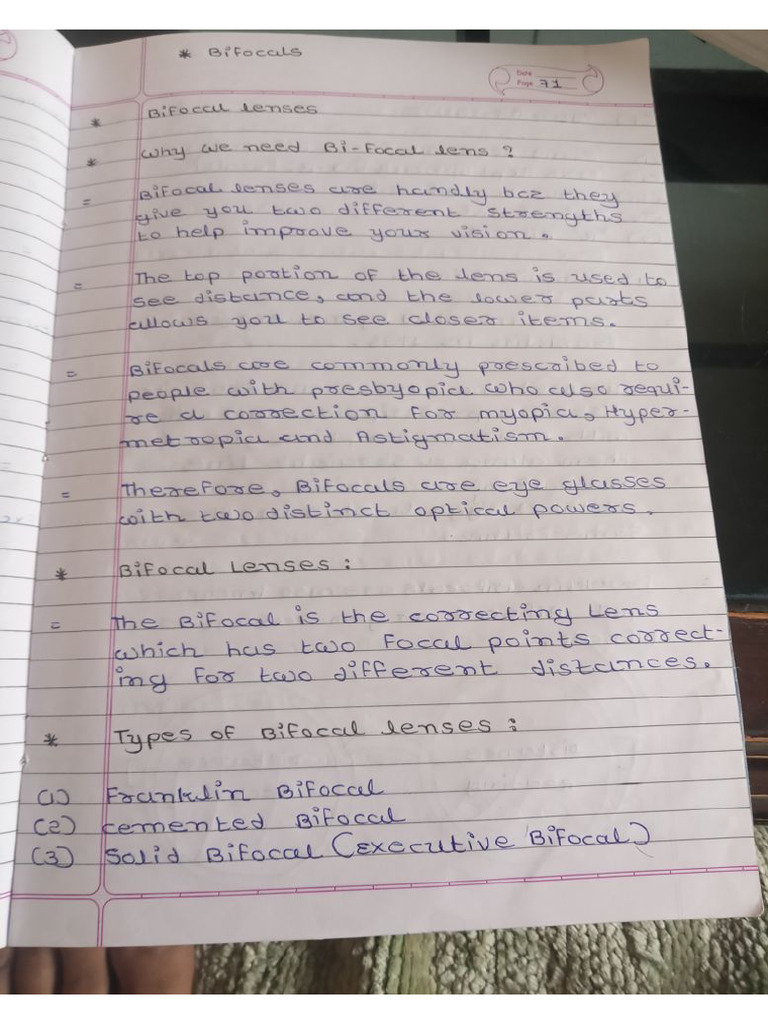 * Bifocals
Date
Page 71
* Bifocal lenses
* Why we need Bi-Focal lens ?
= Bifocal lenses are handly bcz they
give you two different strengths
to help improve your vision.
= The top portion of the lens is used to
see distance, and the lower parts
allows you to see closer items.
= Bifocals are commonly prescribed to
people with presbyopia who also requi-
re a correction for myopia, Hyper-
metropia and Astigmatism.
= Therefore, Bifocals are eye glasses
with two distinct optical powers.
* Bifocal Lenses :
= The Bifocal is the correcting Lens
which has two Focal points correct-
ing for two different distances.
* Types of Bifocal lenses :
(1) Franklin Bifocal
(2) cemented Bifocal
(3) Solid Bifocal (Executive Bifocal)